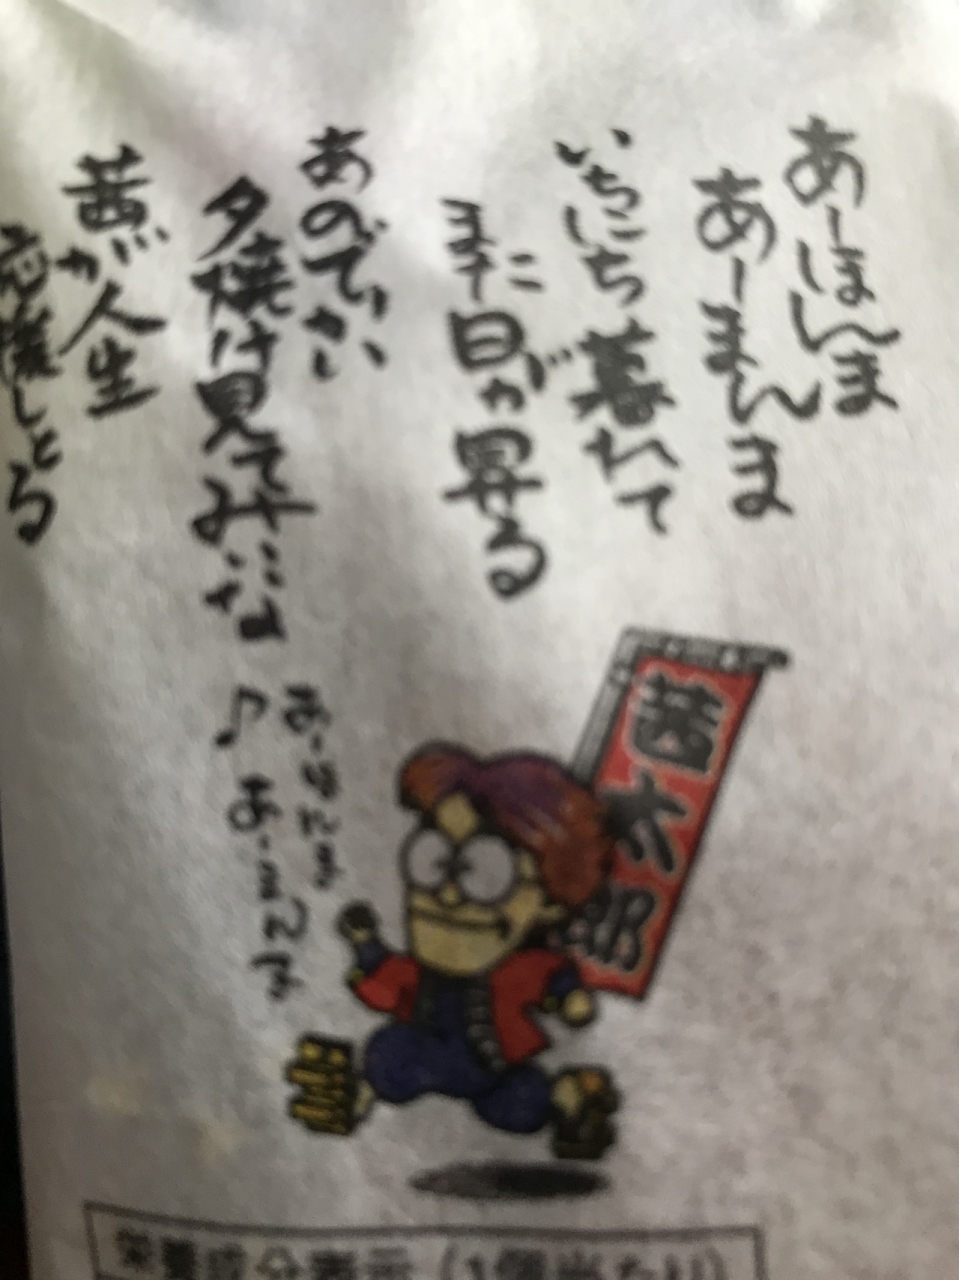 あーほんま
あーまんま
いちにち暮れて
また日が昇る
あのでっかい
夕焼け見てみいな
茜が人生
応援しとる
♪
茜太郎
栄養成分表示(1個当たり)